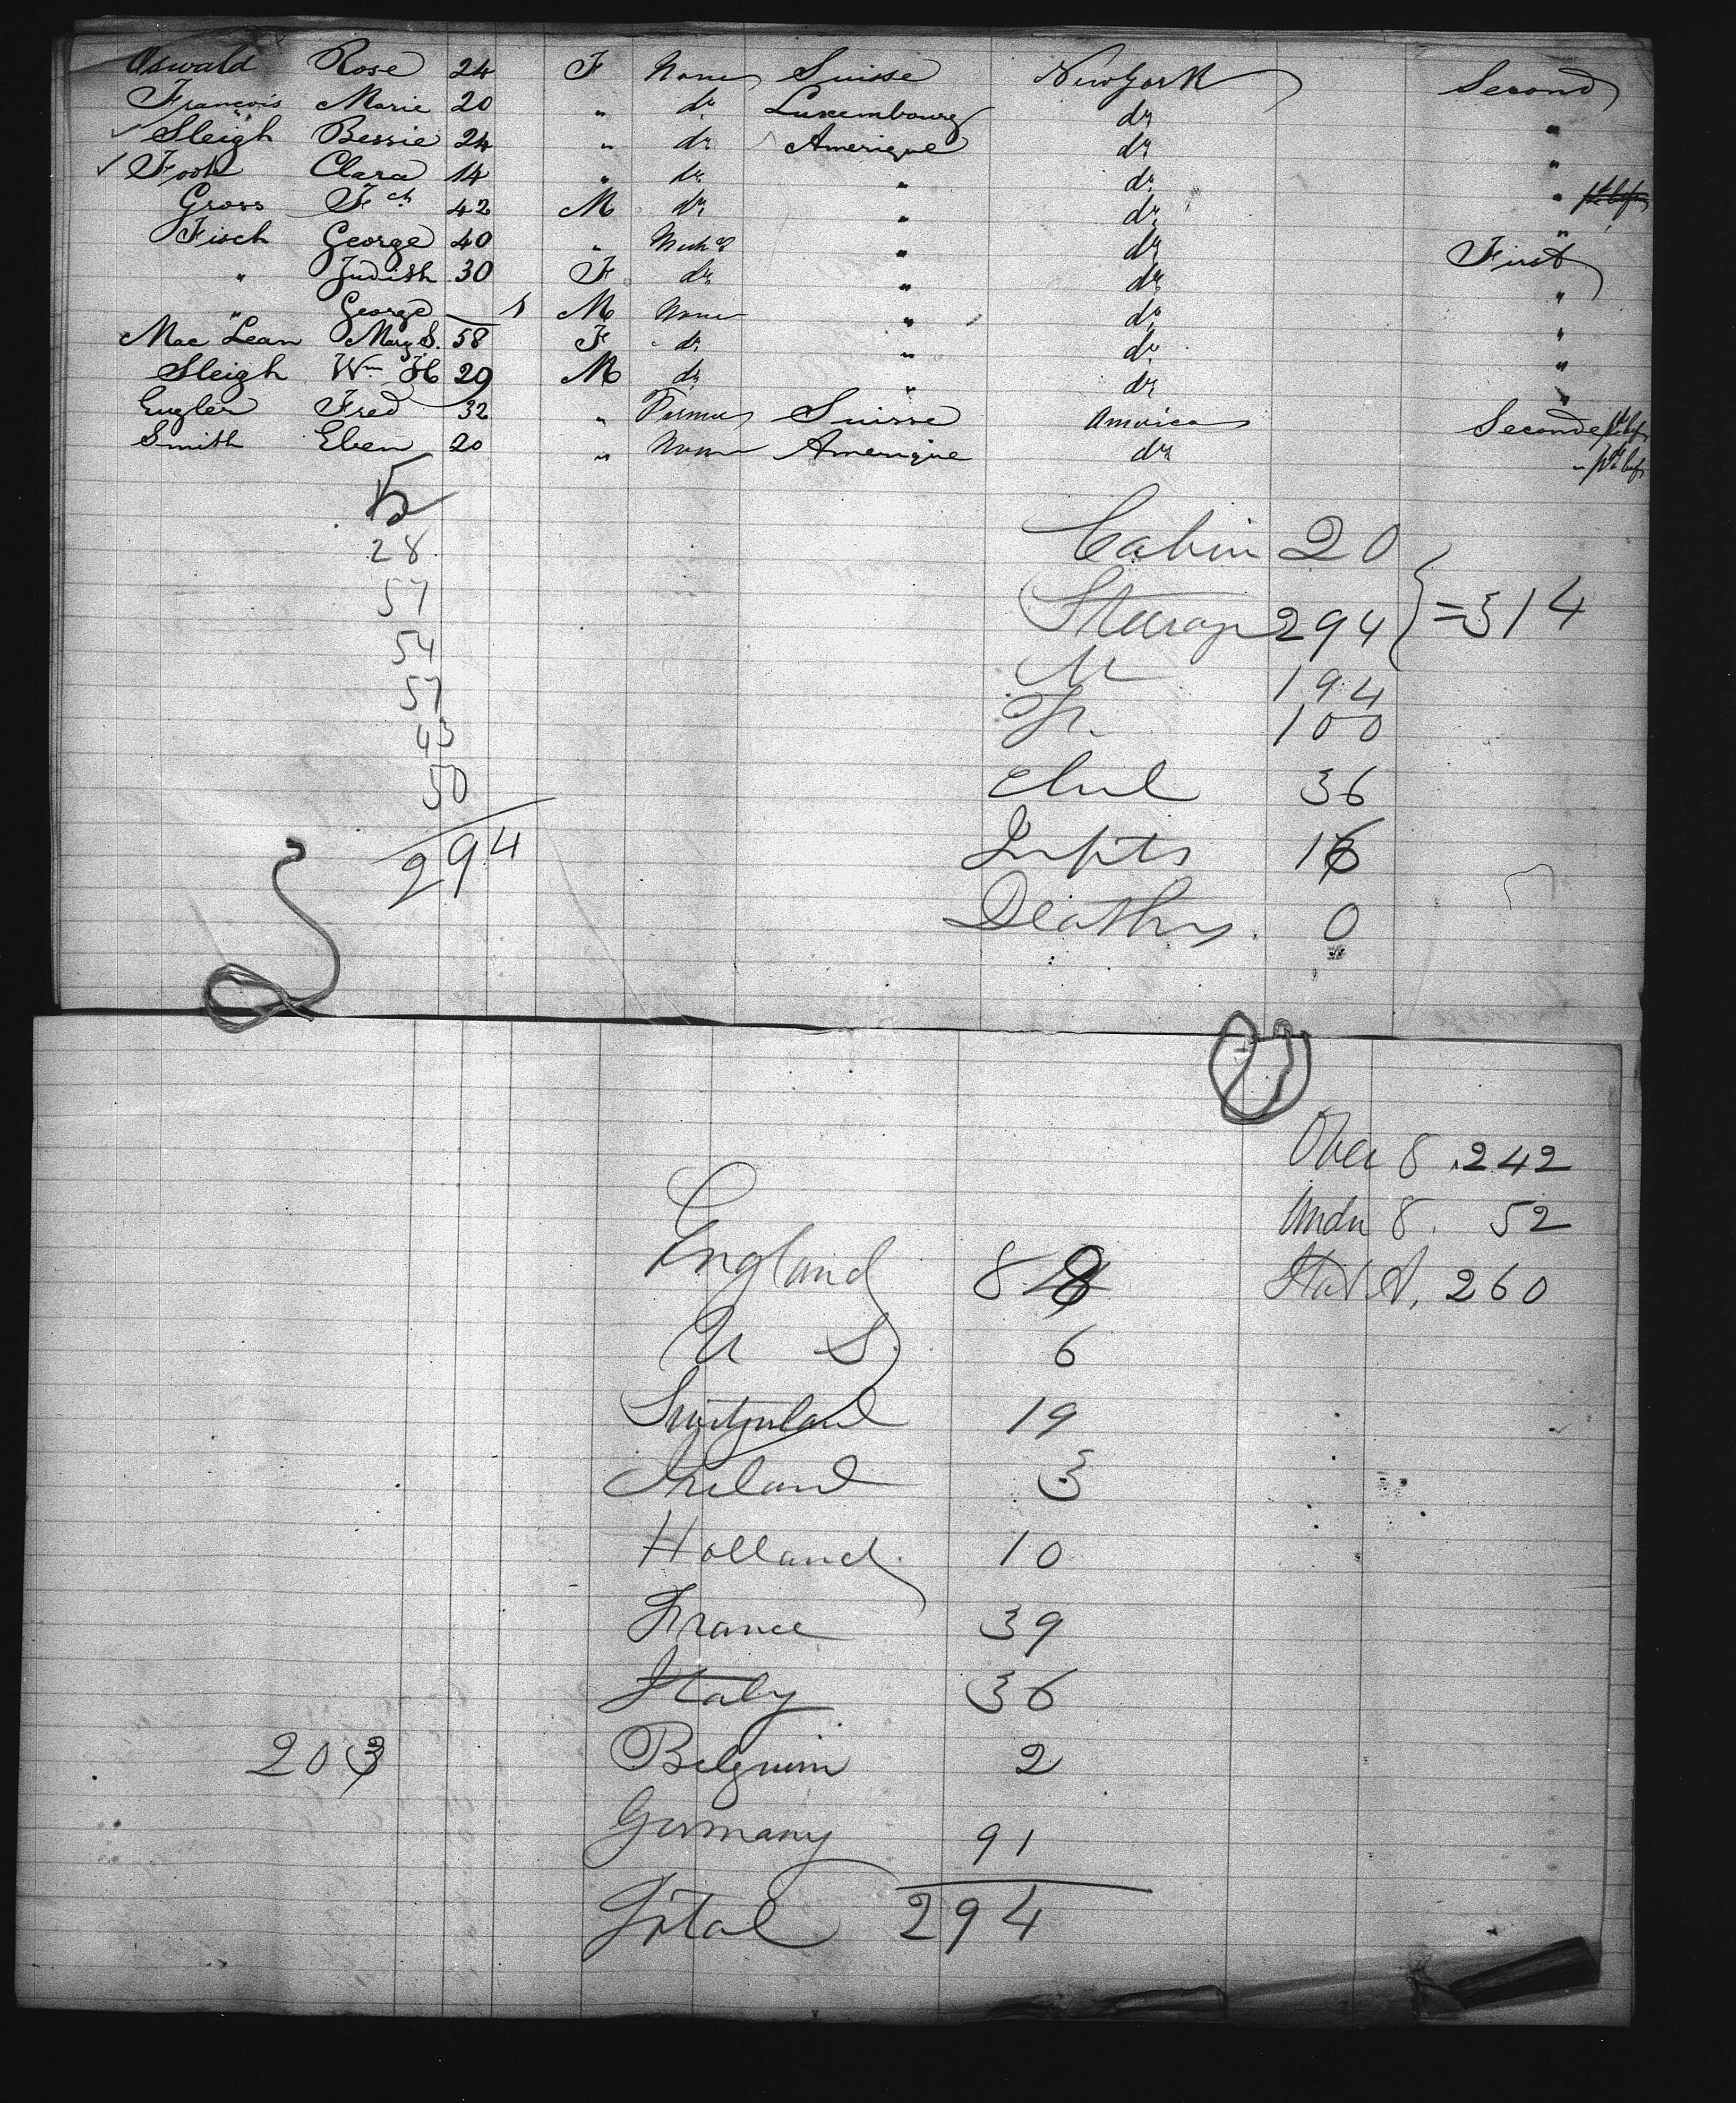 Oswald Rose 24 F None Suisse New York Second
François Marie 20 " do Luxembourg do "
✓ Sleigh Bessie 24 " do Amerique do "
✓ Foote Clara 14 " do " do "
Gross Fch 42 M do " do "
Fisch George 40 " Mech " do First
" Judish 30 F do " do "
" George 1 M None " do "
Mac Lean Mary S. 58 F do " do "
Sleigh Wm H 29 M do " do "
Engler Fred 32 " Farmer Suisse America Seconde
Smith Eben 20 " None Amerique do "
5
28
57
54
57
43
50
294
Cabin 20
Steerage 294 } = 314
M 194
F. 100
Chil 36
Infts 16
Deaths. 0
Over 8. 242
Under 8. 52
Stat A. 260
England 88
U S. 6
Switzerland 19
Ireland 3
Holland. 10
France 39
Italy 36
203 Belguim 2
Germany 91
Total 294